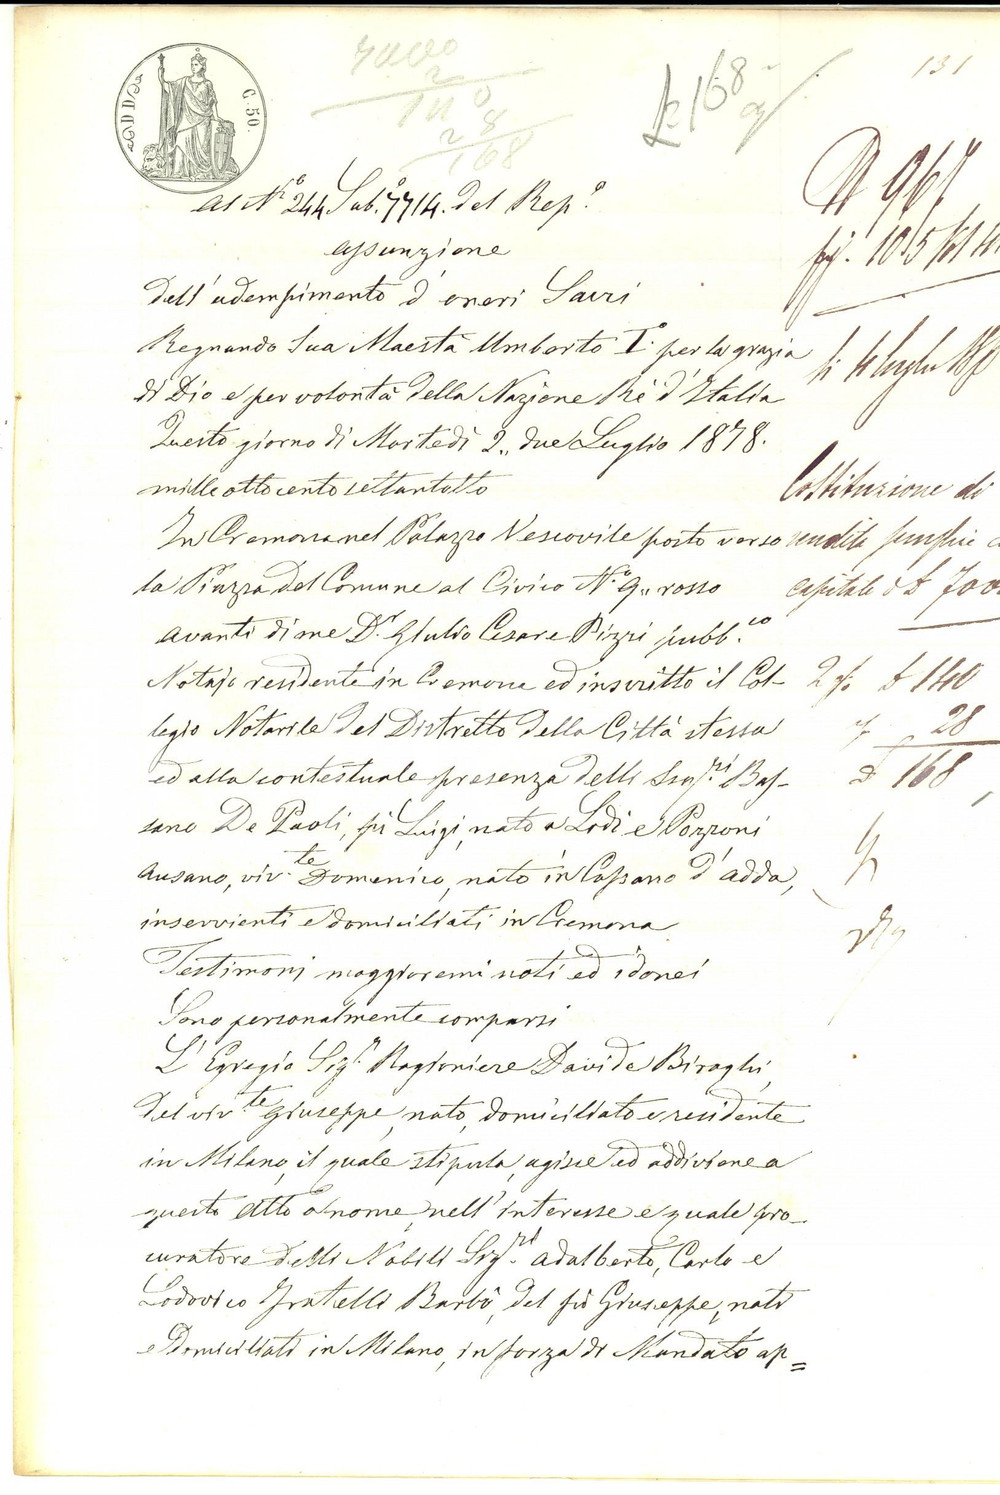 C. 50.
7000
2
140
28
168
£ 168
131
Al N.º 244 Sub.º 7714. del Rep.º
Assunzione
dell'adempimento d'oneri Sacri
Regnando Sua Maestà Umberto Iº per la grazia
di Dio e per volontà della Nazione Rè d'Italia
Questo giorno di Martedì 2,, due Luglio 1878.
mille ottocento settantotto
In Cremona nel Palazzo Vescovile posto verso
la Piazza del Comune al Civico N.º 9,, rosso
Avanti di me D.r Giulio Cesare Pizzi pubb.co
Notajo residente in Cremona ed inscritto il Col-
legio Notarile del Distretto della Città stessa
ed alla contestuale presenza delli Sig.ri Bas-
sano De Paoli, fù Luigi, nato a Lodi e Pozzoni
Ausano, viv.te Domenico, nato in Cassano d'Adda,
inservienti e domiciliati in Cremona
Testimonj maggiorenni noti ed idonei
Sono personalmente comparsi
L'Egregio Sig.r Ragioniere Davide Biraghi,
del viv.te Giuseppe, nato, domiciliato e residente
in Milano, il quale stipula, agisce ed addiviene a
questo Atto a nome, nell'interesse e quale pro-
curatore delli Nobili Sig.ri Adalberto, Carlo e
Lodovico Fratelli Barbò, del fù Giuseppe, nati
e Domiciliati in Milano, in forza di Mandato ap=
N 967
li 4 luglio
Costituzione di
rendita
capitale di £ 7000
2 % £ 140
28
£ 168